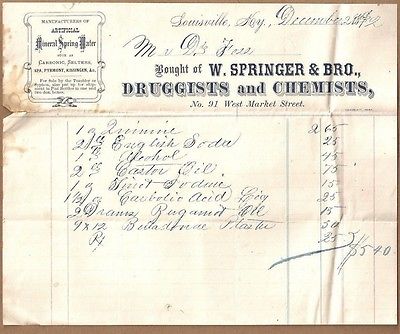 MANUFACTURERS OF
ARTIFICIAL
Mineral Spring Water
SUCH AS
CARBONIC, SELTERS,
SPA, PYRMONT, KISSINGEN, &c.
For Sale by the Tumbler or
Syphon, also put up for shipment
in Pint Bottles in one and
two doz. boxes.
Louisville, Ky., December
Mr Dr Foss
Bought of W. SPRINGER & BRO.,
DRUGGISTS and CHEMISTS,
No. 91 West Market Street.
1 Quinine 2 65
2 English Soda 25
1 Alcohol 45
2 Castor Oil 15
1 Tinct Iodine 15
Carbolic Acid 15
2 Drams Bergamot Oil 15
9 x 12 Belladonna Plaster 50
Rx 25
$5 40